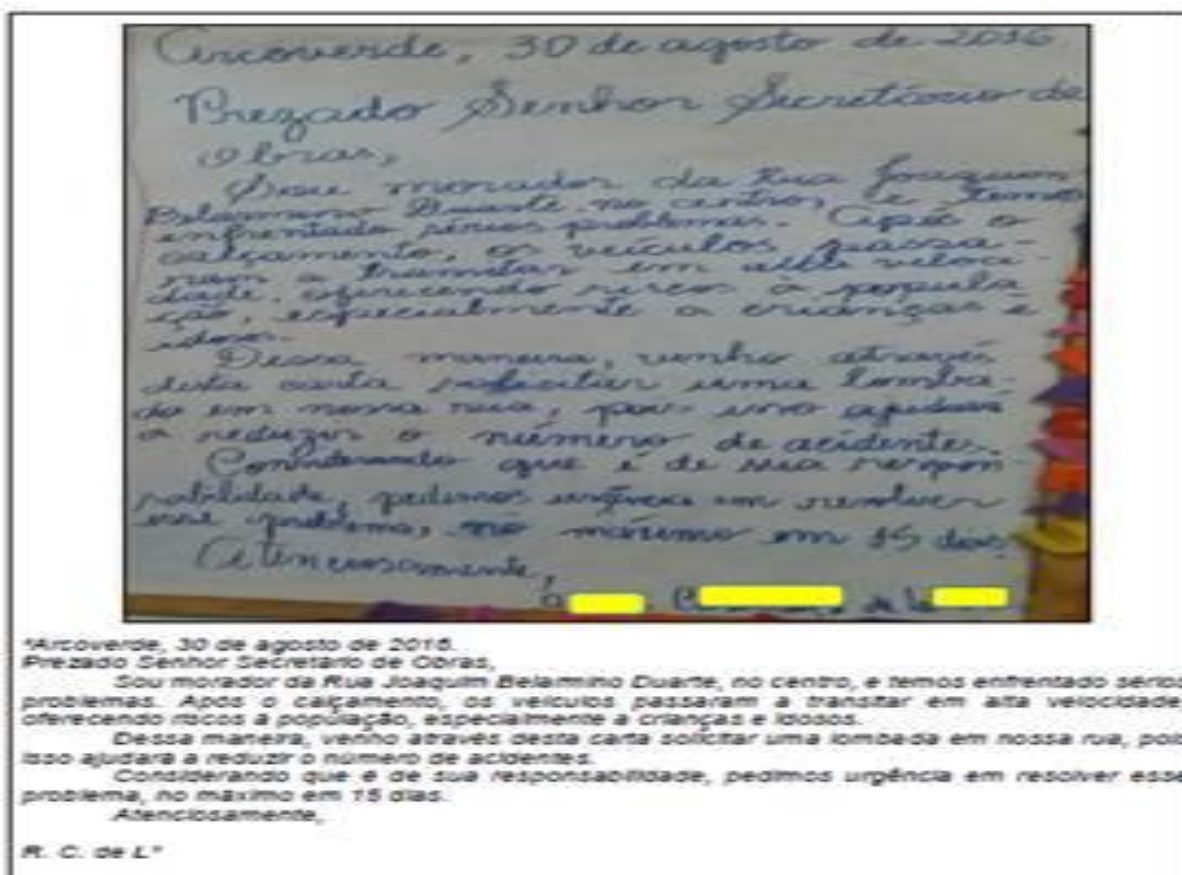 Arcoverde, 30 de agosto de 2016
Prezado Senhor Secretário de
Obras,
Sou morador da Rua Joaquim
Belarmino Duarte, no centro, e temos
enfrentado sérios problemas. Após o
calçamento, os veículos passa-
ram a transitar em alta veloci-
dade, oferecendo riscos a popula
ção, especialmente a crianças e
idosos.
Dessa maneira, venho através
desta carta solicitar uma lomba-
da em nossa rua, pois isso ajudará
a reduzir o número de acidentes.
Considerando que é de sua respon-
sabilidade, pedimos urgência em resolver
esse problema, no máximo em 15 dias.
Atenciosamente,
"Arcoverde, 30 de agosto de 2016.
Prezado Senhor Secretário de Obras,
Sou morador da Rua Joaquim Belarmino Duarte, no centro, e temos enfrentado sérios
problemas. Após o calçamento, os veículos passaram a transitar em alta velocidade,
oferecendo riscos à população, especialmente a crianças e idosos.
Dessa maneira, venho através desta carta solicitar uma lombada em nossa rua, pois
isso ajudará a reduzir o número de acidentes.
Considerando que é de sua responsabilidade, pedimos urgência em resolver esse
problema, no máximo em 15 dias.
Atenciosamente,
R. C. de L"